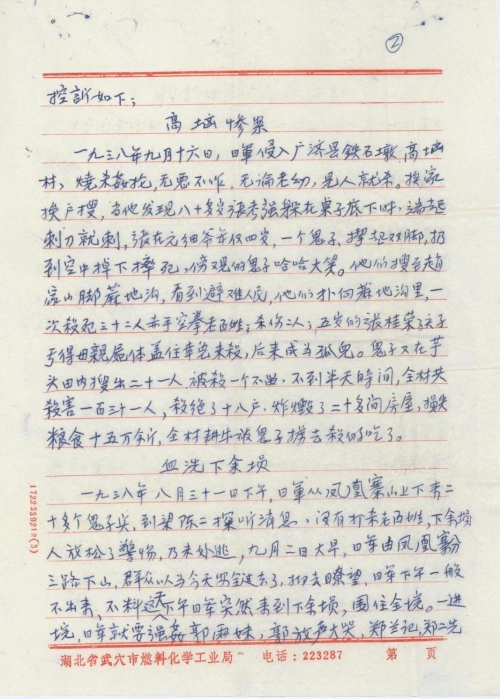 ②
控訴如下：
高垴惨案
一九三八年九月十六日，日軍侵入广济县鉄石墩高垴
村，烧杀姦抢，无恶不作，无论老幼，见人就杀。挨家
挨户搜，当他发现八十多岁张孝强躲在桌子底下时，端起
刺刀就刺，張在元细爷年仅四岁，一个鬼子，撑起双脚，扔
到空中掉下摔死，傍观的鬼子哈哈大笑。他们搜至赵
山脚蔴地沟，看到避难人民，他们扑向蔴地沟里，一
次殺死三十二人赤手空拳老百姓；杀伤二人；五岁的張桂荣
亏得母親屍体盖住幸免未殺，后来成为孤兒。鬼子又在芋
头田内搜出二十一人，被殺一个不留。不到半天時间，全村共
殺害一百三十一人，殺绝了十八户，炸燬了二十多间房屋，损失
粮食十五万余斤，全村耕牛被鬼子捞去殺的吃了。
血洗下余埙
一九三八年八月三十一日下午，日軍从凤凰寨山上下来二
十多个鬼子兵，到梁陈二探听消息，没有打杀老百姓，下余埙
人放松了警惕，乃未外逃，九月二日大早，日軍由凤凰寨分
三路下山，群众以为今天要过去了，扒出去瞭望，日軍下午一般
不出来，不料这天下午日軍突然来到下余埙，围住全境。一进
境，日軍就要强姦郭麻妹，郭放声大哭，郑兰记郑二先
湖北省武穴市燃料化学工业局 电话：223287 第 页
172233921²(3)